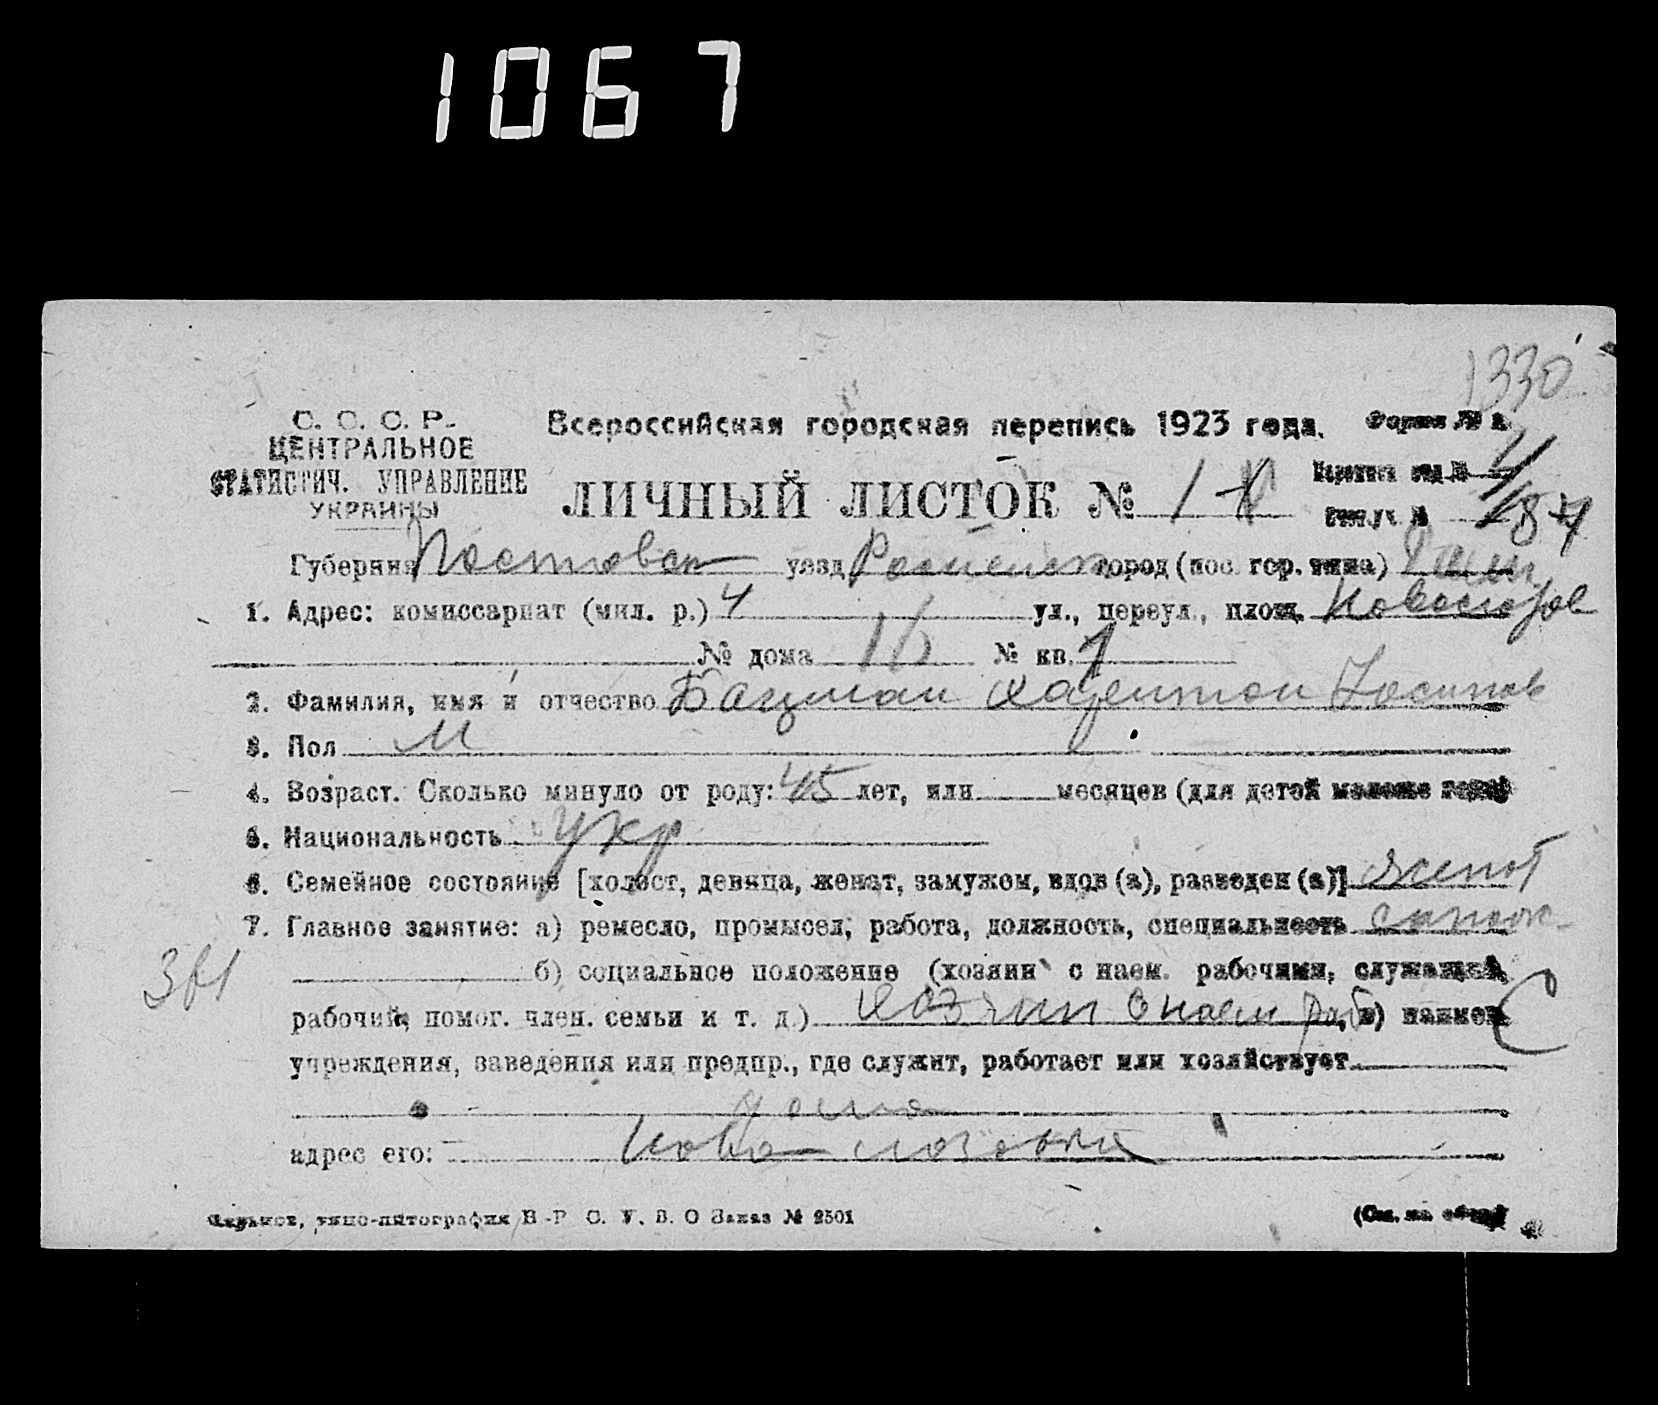 1067
1330
С. С. С. Р. Всероссийская городская перепись 1923 года. Форма №
ЦЕНТРАЛЬНОЕ
СТАТИСТИЧ. УПРАВЛЕНИЕ
УКРАИНЫ
ЛИЧНЫЙ ЛИСТОК № 1
Губерния уезд город (пос. гор. типа)
1. Адрес: комиссариат (мил. р.) 4 ул., переул., площ.
№ дома 16 № кв. 1
2. Фамилия, имя и отчество Бацман Харитон Иосипов
3. Пол М
4. Возраст. Сколько минуло от роду: 45 лет, или месяцев (для детей моложе года)
5. Национальность укр
6. Семейное состояние [холост, девица, женат, замужем, вдов (а), разведен (а)] женат
7. Главное занятие: а) ремесло, промысел, работа, должность, специальность сапож-
361
б) социальное положение (хозяин с наем. рабочими, служащий,
рабочий, помог. член. семьи и т. д.) хозяин с наем раб, в) наимен.
учреждения, заведения или предпр., где служит, работает или хозяйствует
дома
адрес его: Ново-
Харьков, типо-литография В-Р С. У. В. О Заказ № 2501 (См. на обор.)